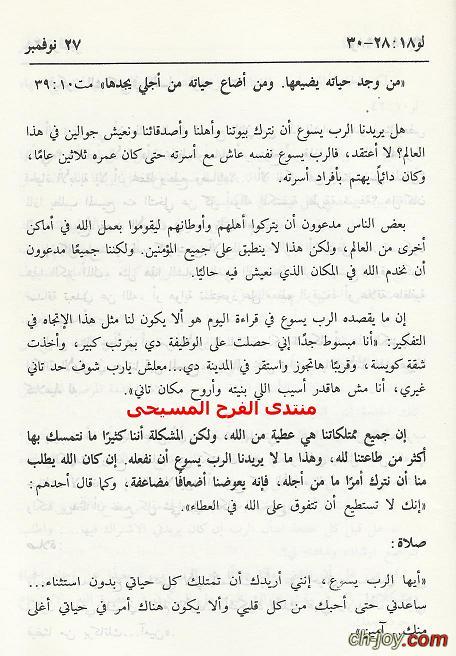 لو١٨:٢٨-٣٠
٢٧ نوفمبر
«من وجد حياته يضيعها. ومن أضاع حياته من أجلي يجدها» مت١٠:٣٩
هل يريدنا الرب يسوع أن نترك بيوتنا وأهلنا وأصدقائنا ونعيش جوالين في هذا
العالم؟ لا أعتقد، فالرب يسوع نفسه عاش مع أسرته حتى كان عمره ثلاثين عامًا،
وكان دائمًا يهتم بأفراد أسرته.
بعض الناس مدعوون أن يتركوا أهلهم وأوطانهم ليقوموا بعمل الله في أماكن
أخرى من العالم، ولكن هذا لا ينطبق على جميع المؤمنين. ولكننا جميعًا مدعوون
أن نخدم الله في المكان الذي نعيش فيه حاليًا.
إن ما يقصده الرب يسوع في قراءة اليوم هو ألا يكون لنا مثل هذا الإتجاه في
التفكير: «أنا مبسوط جدًا إني حصلت على الوظيفة دي بمرتب كبير، وأخذت
شقة كويسة، وقريبًا هاتجوز واستقر في المدينة دي...معلش يارب شوف حد تاني
غيري، أنا مش هاقدر أسيب اللي بنيته وأروح مكان تاني».
منتدى الفرح المسيحى
إن جميع ممتلكاتنا هي عطية من الله، ولكن المشكلة أننا كثيرًا ما نتمسك بها
أكثر من طاعتنا لله، وهذا ما لا يريدنا الرب يسوع أن نفعله. إن كان الله يطلب
منا أن نترك أمرًا ما من أجله، فإنه يعوضنا أضعافًا مضاعفة، وكما قال أحدهم:
«إنك لا تستطيع أن تتفوق على الله في العطاء».
صلاة:
«أيها الرب يسوع، إنني أريدك أن تمتلك كل حياتي بدون استثناء...
ساعدني حتى أحبك من كل قلبي وألا يكون هناك أمر في حياتي أغلى
منك. آمين»
ch-joy.com